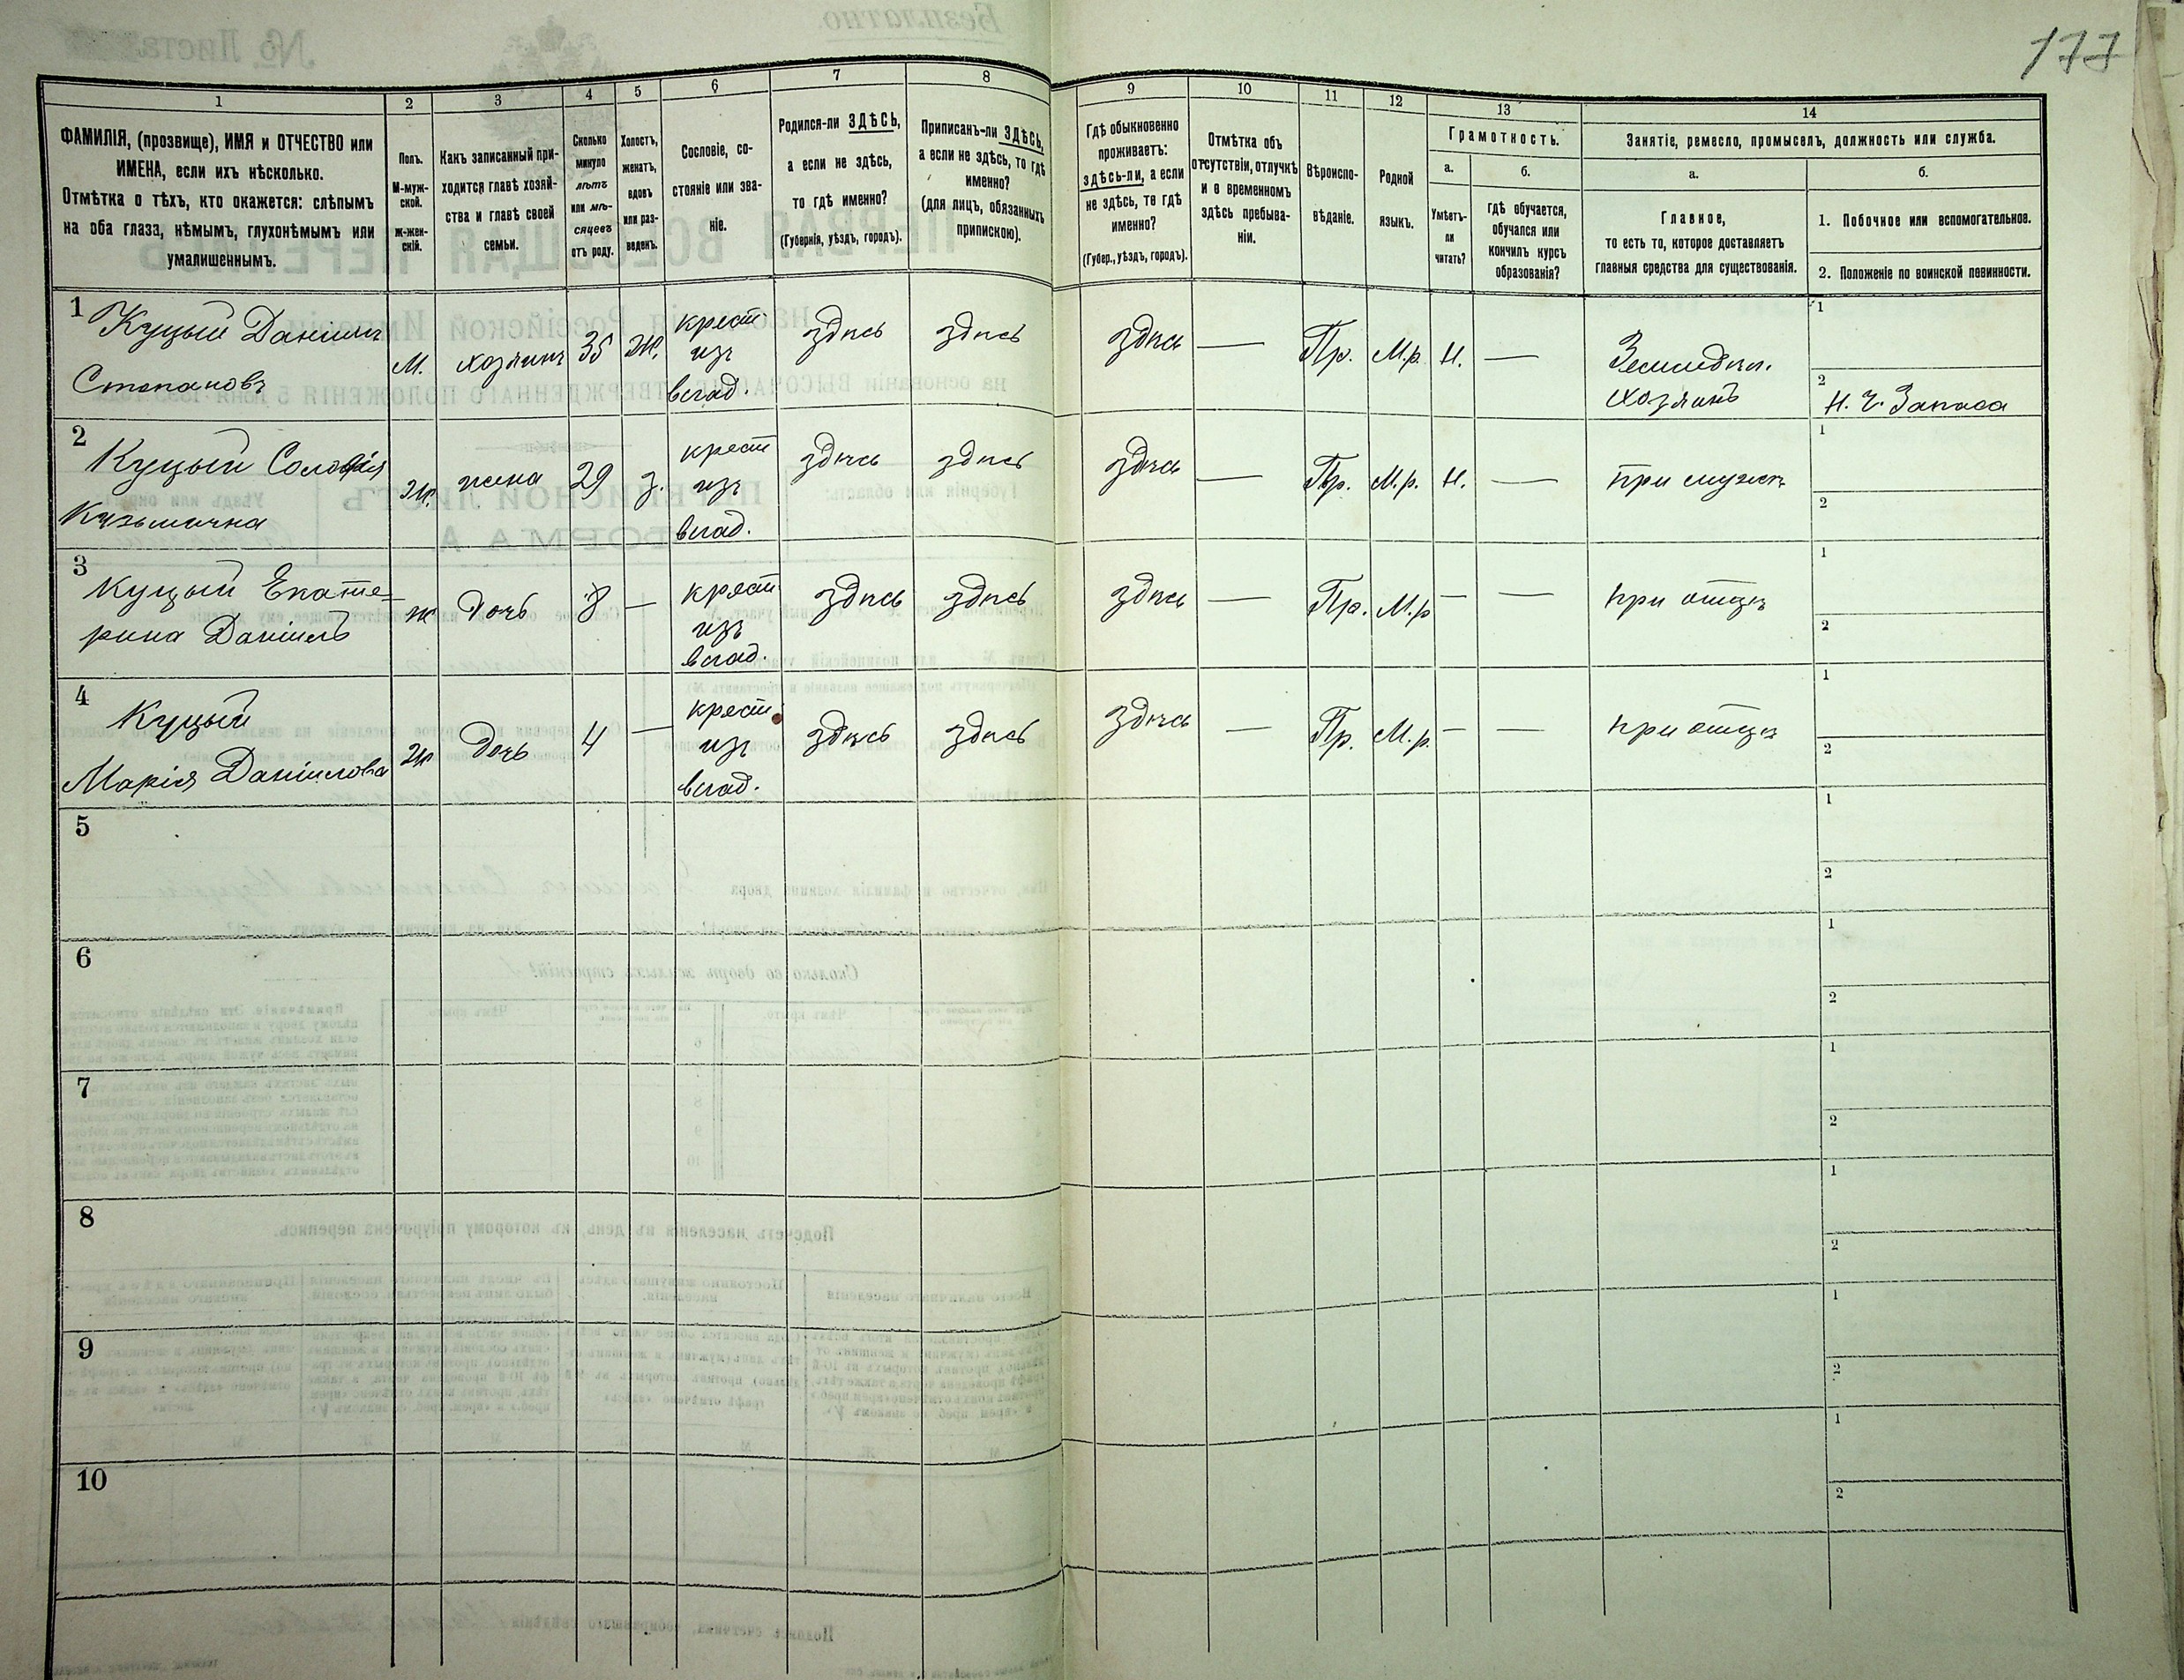 177
1 2 3 4 5 6 7 8 9 10 11 12 13 14
ФАМИЛІЯ, (прозвище), ИМЯ и ОТЧЕСТВО или
ИМЕНА, если ихъ нѣсколько.
Отмѣтка о тѣхъ, кто окажется: слѣпымъ
на оба глаза, нѣмымъ, глухонѣмымъ или
умалишеннымъ.
Полъ.
М-муж-
ской.
ж-жен-
скій.
Какъ записанный при-
ходится главѣ хозяй-
ства и главѣ своей
семьи.
Сколько
минуло
лѣтъ
или мѣ-
сяцевъ
отъ роду.
Холостъ,
женатъ,
вдовъ
или раз-
веденъ.
Сословіе, со-
стояніе или зва-
ніе.
Родился-ли ЗДѢСЬ,
а если не здѣсь,
то гдѣ именно?
(Губернія, уѣздъ, городъ).
Приписанъ-ли ЗДѢСЬ,
а если не здѣсь, то гдѣ
именно?
(для лицъ, обязанныхъ
припискою).
Гдѣ обыкновенно
проживаетъ:
здѣсь-ли, а если
не здѣсь, то гдѣ
именно?
(Губер., уѣздъ, городъ).
Отмѣтка объ
отсутствіи, отлучкѣ
и о временномъ
здѣсь пребыва-
ніи.
Вѣроиспо-
вѣданіе.
Родной
языкъ.
Грамотность.
а.
Умѣетъ-
ли
читать?
б.
гдѣ обучается,
обучался или
кончилъ курсъ
образованія?
Занятіе, ремесло, промыселъ, должность или служба.
а.
Главное,
то есть то, которое доставляетъ
главныя средства для существованія.
б.
1. Побочное или вспомогательное.
2. Положеніе по воинской повинности.
1 Куцый Даніилъ
Степановъ
М. хозяинъ 35 Ж.
крест.
изъ
влад.
здѣсь здѣсь здѣсь — Пр. М.р. Н. —
Земледѣл.
хозяинъ
1
2 Н. Ч. Запаса
2 Куцый Соломія
Кузьмична
Ж. жена 29 з.
крест
изъ
влад.
здѣсь здѣсь здѣсь — Пр. М.р. Н. — при мужѣ
1
2
3 Куцый Екате-
рина Даніилъ
Ж дочь 8 —
крест
изъ
влад.
здѣсь здѣсь здѣсь — Пр. М.р — — при отцѣ
1
2
4 Куцый
Марія Даніилова
Ж дочь 4 —
крест.
изъ
влад.
здѣсь здѣсь здѣсь — Пр. М.р. — — при отцѣ
1
2
5
1
2
6
1
2
7
1
2
8
1
2
9
1
2
10
1
2